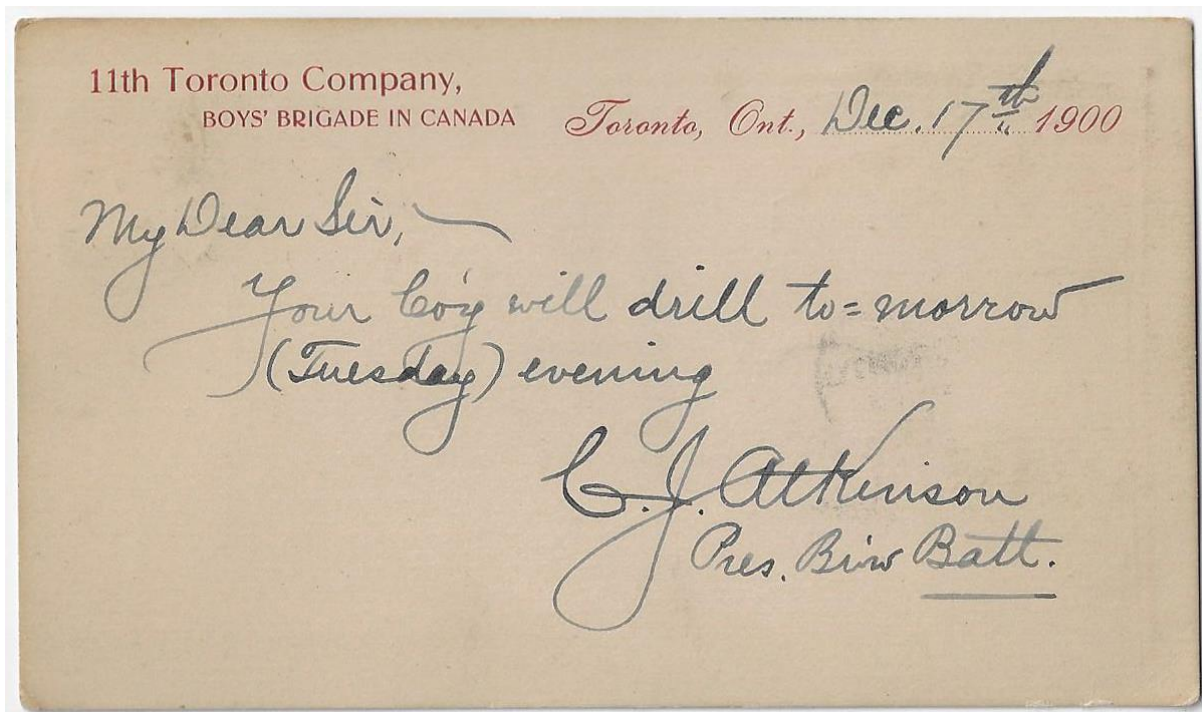 11th Toronto Company,
BOYS' BRIGADE IN CANADA
Toronto, Ont., Dec. 17th 1900
My Dear Sir,
Your Co'y will drill to=morrow
(Tuesday) evening
C. J. Atkinson
Pres. Batt.